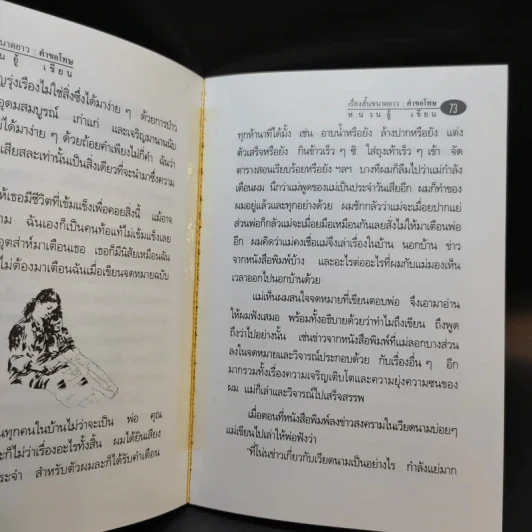 นาดยาว : คำขอโทษ
ผู้ เขียน
ญรุ่งเรืองไม่ใช่สิ่งซึ่งได้มาง่าย ๆ ด้วยการป่าว
อุดมสมบูรณ์ เก่าแก่ และเจริญมานานนับ
ได้มาง่าย ๆ ด้วยถ้อยคำเพียงไม่กี่คำ ฉันว่า
เสียสละเท่านั้นเป็นสิ่งเดียวที่จะนำมาซึ่งความ
ห้เธอมีชีวิตที่เข้มแข็งเพื่อคอยสิ่งนี้ แม้อาจ
าม ฉันเองก็เป็นคนที่อแท้ไม่เข้มแข็งเลย
อุตส่าห์มาเตือนเธอ เธอก็มีนิสัยเหมือนฉัน
ไม่ต้องมาเตือนฉันเมื่อเขียนจดหมายฉบับ
นทุกคนในบ้านไม่ว่าจะเป็น พ่อ คุณ
ะก็ไม่ว่าเรื่องอะไรทั้งสิ้น ผมได้ยินเสียง
ระจำ สำหรับตัวผมละก็ได้รับคำเตือน
เรื่องสั้นขนาดยาว : คำขอโทษ 73
หนวนผู้ เขียน
ทุกห้านาทีได้มั้ง เช่น อาบน้ำหรือยัง ล้างปากหรือยัง แต่ง
ตัวเสร็จหรือยัง กินข้าวเร็ว ๆ ซิ ใส่ถุงเท้าเร็ว ๆ เข้า จัด
ตารางสอนเรียบร้อยหรือยัง ฯลฯ บางทีผมก็ลืมไปว่าแม่กำลัง
เตือนผม นึกว่าแม่พูดของแม่เป็นประจำวันเสียอีก ผมก็ทำของ
ผมอยู่แล้วและทุกอย่างด้วย ผมชักกลัวว่าแม่จะเมื่อยปากแย่
ส่วนพ่อก็กลัวแม่จะเมื่อยมือเหมือนกันเลยสั่งไม่ให้มาเตือนพ่อ
อีก ผมคิดว่าแม่คงเชื่อแม่จึงเล่าเรื่องในบ้าน นอกบ้าน ข่าว
จากหนังสือพิมพ์บ้าง และอะไรต่ออะไรที่ผมกับแม่มองเห็น
เวลาออกไปนอกบ้านด้วย
แม่เห็นผมสนใจจดหมายที่เขียนตอบพ่อ จึงเอามาอ่าน
ให้ผมฟังเสมอ พร้อมทั้งอธิบายด้วยว่าทำไมถึงเขียน ถึงพูด
ถึงว่าไปอย่างนั้น เช่นข่าวจากหนังสือพิมพ์ที่แม่ลอกบางส่วน
ลงในจดหมายและวิจารณ์ประกอบด้วย กับเรื่องอื่น ๆ อีก
มากรวมทั้งเรื่องความเจริญเติบโตและความยุ่งความซนของ
ผม แม่ก็เล่าและวิจารณ์ไปเสร็จสรรพ
เมื่อตอนที่หนังสือพิมพ์ลงข่าวสงครามในเวียดนามบ่อยๆ
แม่เขียนไปเล่าให้พ่อฟังว่า
"ที่โน่นข่าวเกี่ยวกับเวียดนามเป็นอย่างไร กำลังแย่มาก